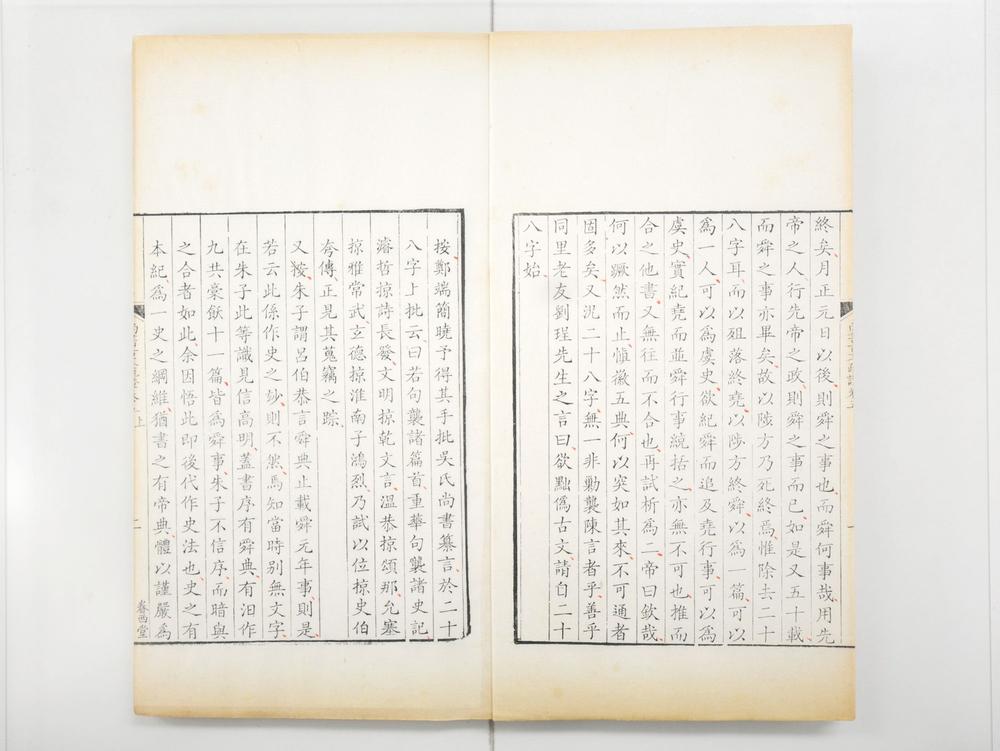 終矣月正元日以後則舜之事也而舜何事哉用先
帝之人行先帝之政則舜之事而已如是又五十載
而舜之事亦畢矣故以陟方乃死終焉惟除去二十
八字耳而以殂落終堯以陟方終舜以為一篇可以
為一人可以為虞史欲紀舜而追及堯行事可以為
虞史實紀堯而並舜行事統括之亦無不可也推而
合之他書又無往而不合也再試析為二帝曰欽哉
何以厥然而止慎徽五典何以突如其來不可通者
固多矣又況二十八字無一非勦襲陳言者乎善乎
同里老友劉珵先生之言曰欲黜偽古文請自二十
八字始
按鄭端簡曉予得其手批吳氏尚書纂言於二十
八字上批云曰若句襲諸篇首重華句襲諸史記
濬哲掠詩長發文明掠乾文言溫恭掠頌那允塞
掠雅常武玄德掠淮南子鴻烈乃試以位掠史伯
夷傳正見其蒐竊之踪
又按朱子謂呂伯恭言舜典止載舜元年事則是
若云此係作史之妙則不然焉知當時別無文字
在朱子此等識見信高明蓋書序有舜典有汨作
九共稾飫十一篇皆為舜事朱子不信序而暗與
之合者如此余因悟此即後代作史法也史之有
本紀為一史之綱維猶書之有帝典體以謹嚴為
二
眷西堂